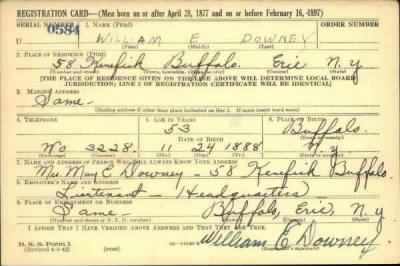 REGISTRATION CARD—(Men born on or after April 28, 1877 and on or before February 16, 1897)
SERIAL NUMBER 1. NAME (Print) ORDER NUMBER
0584
U WILLIAM E DOWNEY
(First) (Middle) (Last)
2. PLACE OF RESIDENCE (Print)
58 Kenefick Buffalo. Erie N.Y
(Number and street) (Town, township, village, or city) (County) (State)
[THE PLACE OF RESIDENCE GIVEN ON THE LINE ABOVE WILL DETERMINE LOCAL BOARD
JURISDICTION; LINE 2 OF REGISTRATION CERTIFICATE WILL BE IDENTICAL]
3. MAILING ADDRESS
Same
[Mailing address if other than place indicated on line 2. If same insert word same]
4. TELEPHONE 5. AGE IN YEARS 6. PLACE OF BIRTH
53 Buffalo.
DATE OF BIRTH (Town or county)
Wo 3228. 11 24 1888 N.Y
(Exchange) (Number) (Mo.) (Day) (Yr.) (State or country)
7. NAME AND ADDRESS OF PERSON WHO WILL ALWAYS KNOW YOUR ADDRESS
Mrs May E Downey - 58 Kenefick Buffalo.
8. EMPLOYER'S NAME AND ADDRESS
Lieutenant - Headquarters
9. PLACE OF EMPLOYMENT OR BUSINESS
Same - Buffalo, Erie, N.Y
(Number and street or R. F. D. number) (Town) (County) (State)
I AFFIRM THAT I HAVE VERIFIED ABOVE ANSWERS AND THAT THEY ARE TRUE.
D. S. S. Form 1
(Revised 4-1-42) (over)
William E Downey